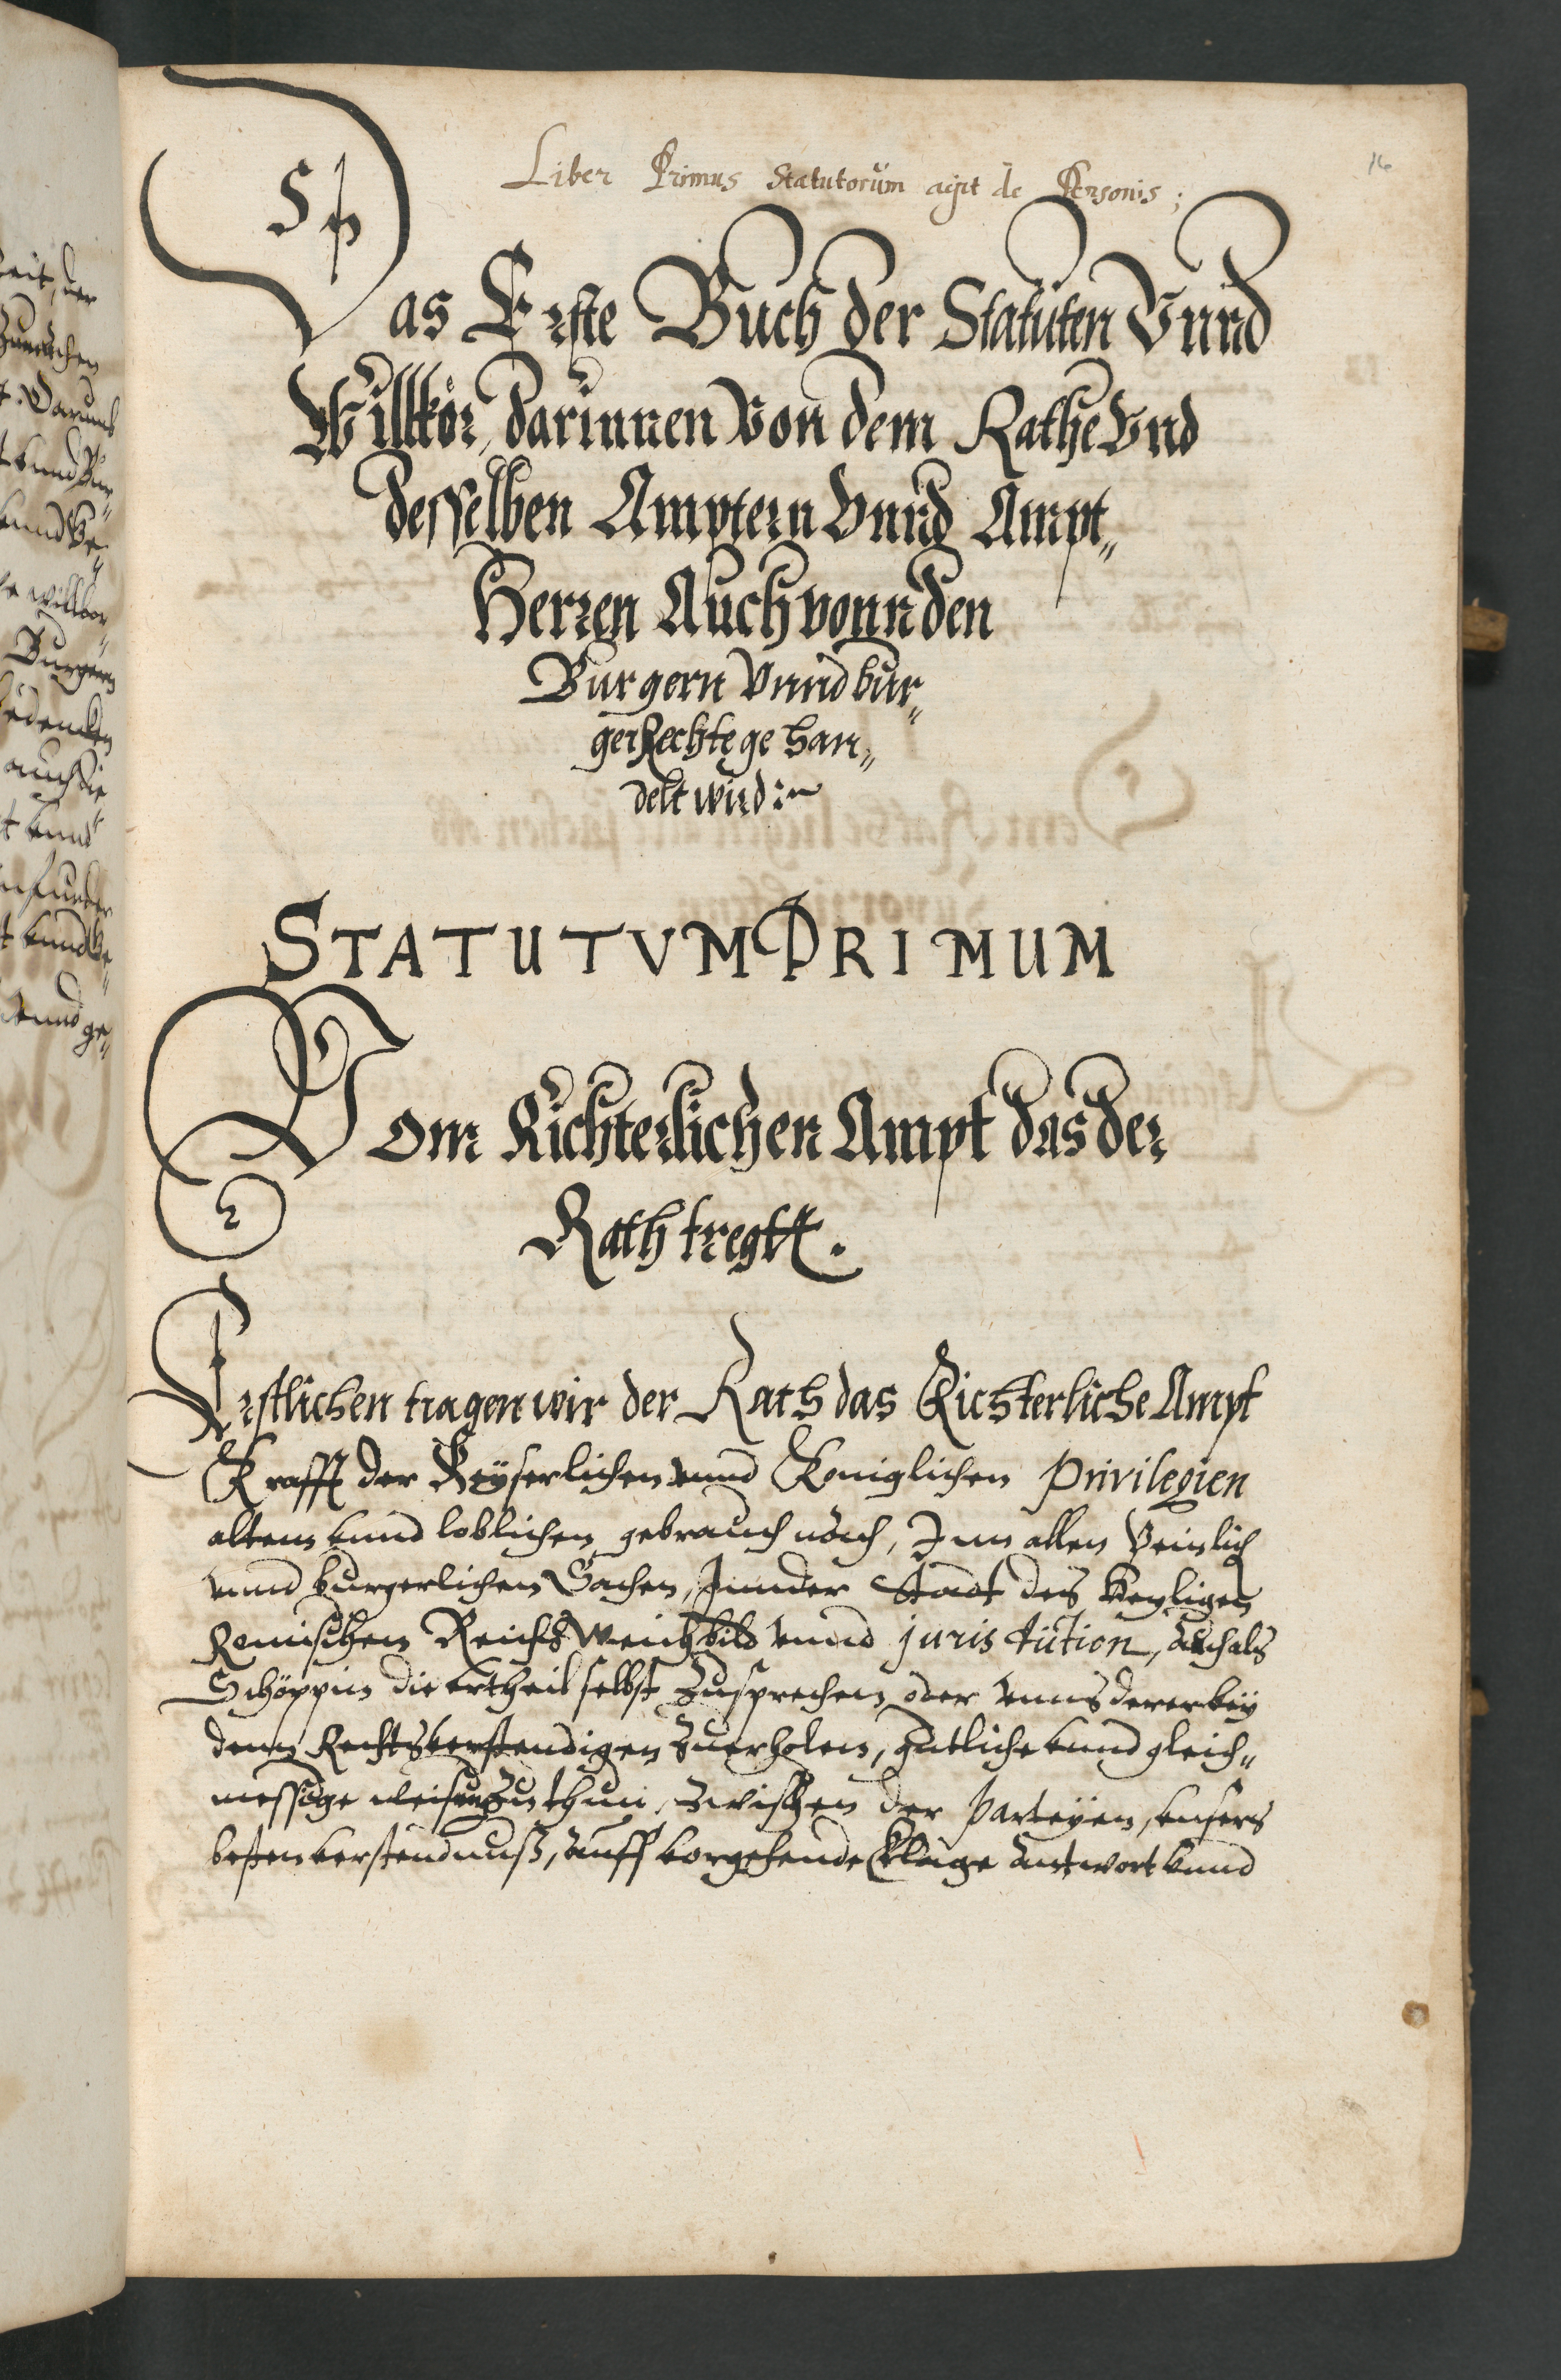 16
Liber Primus Statutorum agit de Personis;
Das Erste Buch der Statuten Vnnd
Willkör, darinnen Von dem Rathe Vnd
desselben Amptern Vnnd Ampt„
Herren Auch vonn den
Burgern Vnnd bur„
ger Rechte ge han„
delt wird :~
STATUTVM PRIMUM
Vom Richterlichen Ampt das der
Rath tregtt.
Erstlichen tragen wir der Rath das Richterliche Ampt
Krafft der Keÿserlichen vnnd Königlichen Privilegien
altem vnnd loblichen gebrauch nach, Inn allen Peinlich
vnnd burgerlichen Sachen, Inn der Stadt des Heyligen
Romischen Reichs Weichbild vnnd juris dution, auch als
Schöppin die vrtheil selbst zusprechen oder vnns derer beÿ
denn Rechtsverstendigen zuerholen, gutliche vnnd gleich„
messige weisung zu thun, zwischen der Parteÿen, vnsers
besten verstendnuß, auff vorgehende Klage antwort vnnd